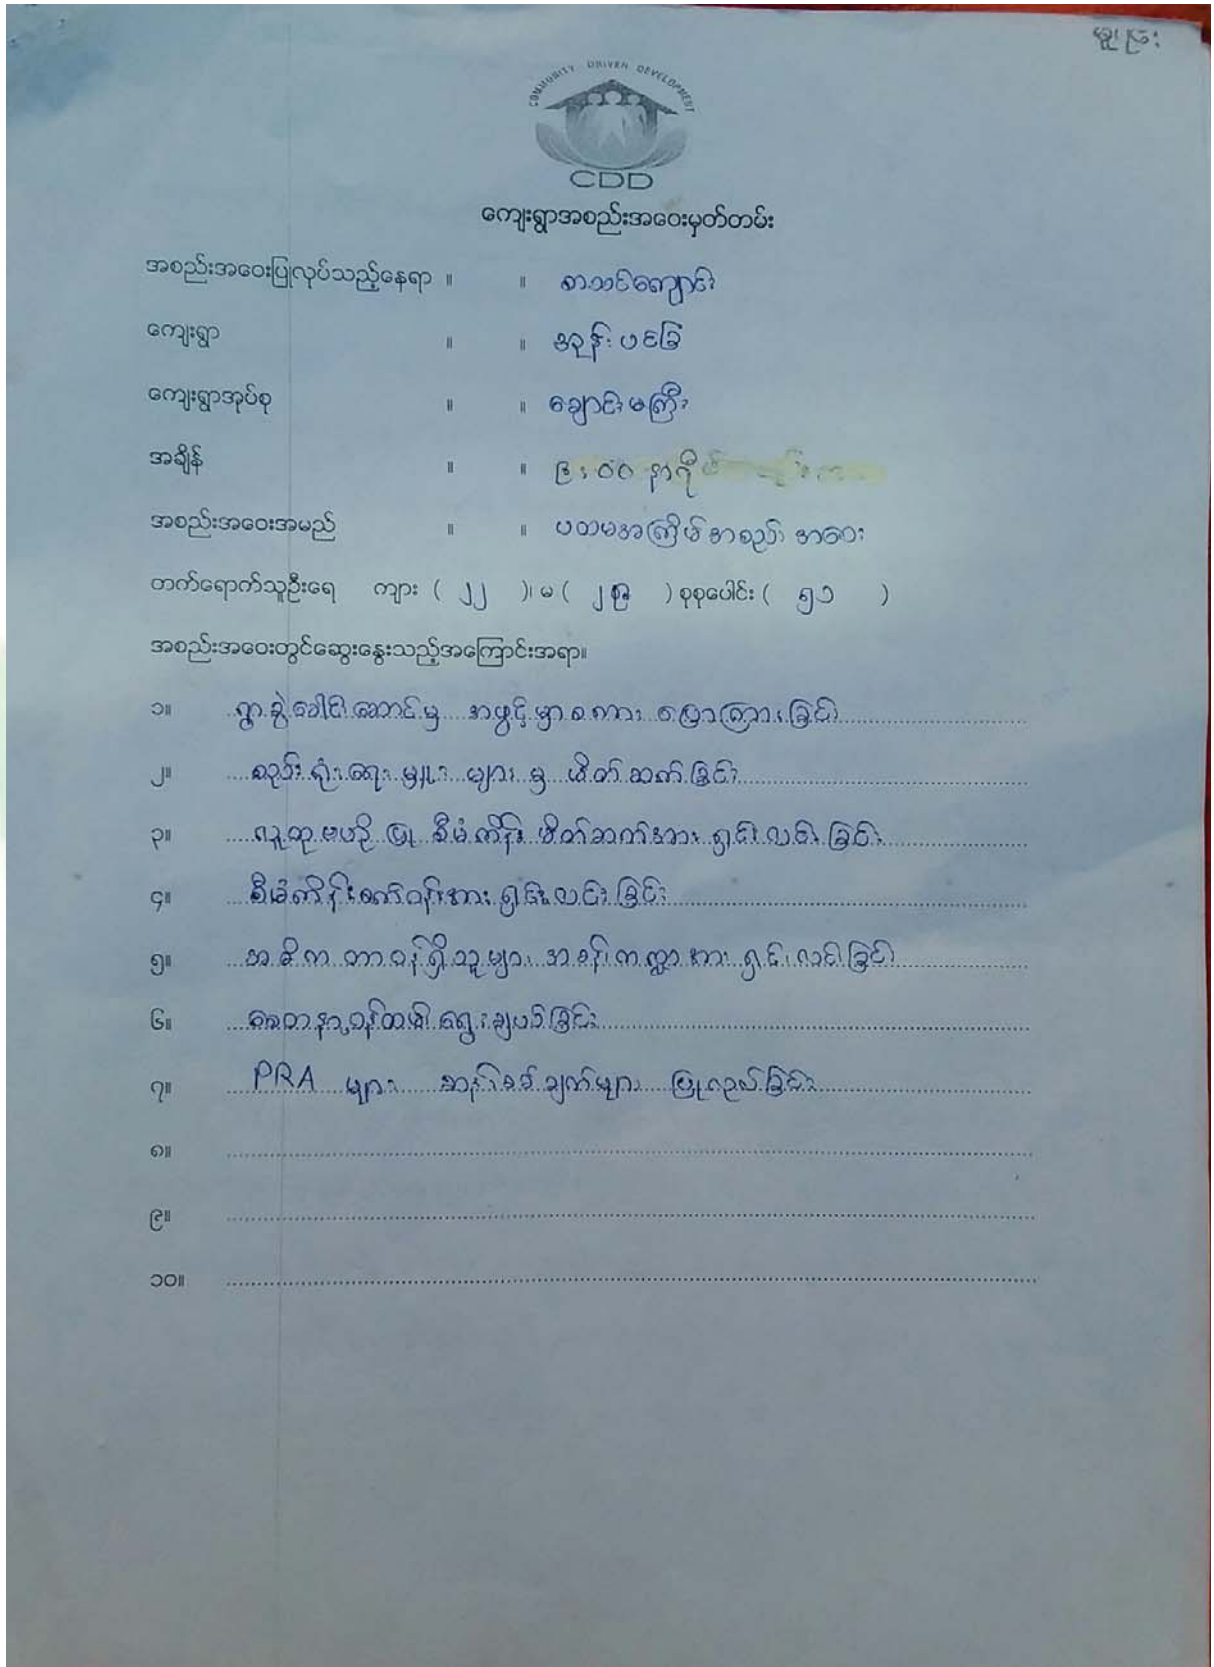 မူရင်း
COMMUNITY DRIVEN DEVELOPMENT
CDD
ကျေးရွာအစည်းအဝေးမှတ်တမ်း
အစည်းအဝေးပြုလုပ်သည့်နေရာ ။ ။ စာသင်ကျောင်း
ကျေးရွာ ။ ။ အုန်းပင်ခြံ
ကျေးရွာအုပ်စု ။ ။ ချောင်းမကြီး
အချိန် ။ ။ ၉း၀၀ နာရီ
အစည်းအဝေးအမည် ။ ။ ပထမအကြိမ်အစည်း အဝေး
တက်ရောက်သူဦးရေ ကျား ( ၂၂ )၊ မ ( ၂၉ ) စုစုပေါင်း ( ၅၁ )
အစည်းအဝေးတွင်ဆွေးနွေးသည့်အကြောင်းအရာ။
၁။ ရွာခွဲခေါင်းဆောင်မှ အဖွင့်မှာစကား ပြောကြားခြင်း
၂။ စည်းရုံးရေးမှူး များမှ မိတ်ဆက်ခြင်း
၃။ လူထုဗဟိုပြု စီမံကိန်း မိတ်ဆက်အား ရှင်းလင်းခြင်း
၄။ စီမံကိန်းစက်ဝန်းအား ရှင်းလင်းခြင်း
၅။ အဓိကတာဝန်ရှိသူများ အခန်းကဏ္ဍအား ရှင်းလင်းခြင်း
၆။ စေတနာ့ဝန်ထမ်း ရွေးချယ်ခြင်း
၇။ PRA များ ဆန်းစစ်ချက်များ ပြုလုပ်ခြင်း
၈။
၉။
၁၀။